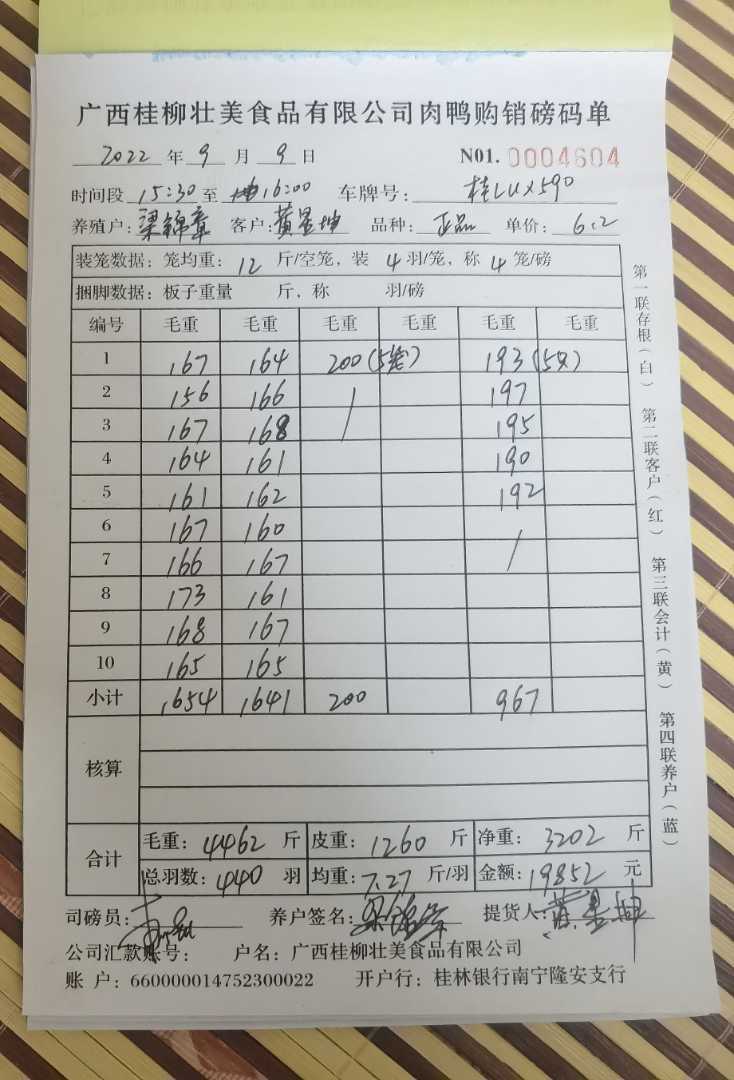 广西桂柳壮美食品有限公司肉鸭购销磅码单
2022 年 9 月 9 日 N01. 0004604
时间段 15:30 至 16:00 车牌号: 桂LUX590
养殖户: 梁锦章 客户: 黄星坤 品种: 正品 单价: 6.2
装笼数据: 笼均重: 12 斤/空笼, 装 4 羽/笼, 称 4 笼/磅
捆脚数据: 板子重量 斤, 称 羽/磅
编号 毛重 毛重 毛重 毛重 毛重 毛重
1 167 164 200(5笼) 193(5只)
2 156 166 / 197
3 167 168 / 195
4 164 161 190
5 161 162 192
6 167 160 /
7 166 167 /
8 173 161
9 168 167
10 165 165
小计 1654 1641 200 967
核算
合计
毛重: 4462 斤 皮重: 1260 斤 净重: 3202 斤
总羽数: 440 羽 均重: 7.27 斤/羽 金额: 19852 元
司磅员: 养户签名: 梁锦章 提货人: 黄星坤
公司汇款账号: 户名: 广西桂柳壮美食品有限公司
账 户: 660000014752300022 开户行: 桂林银行南宁隆安支行
第一联存根(白) 第二联客户(红) 第三联会计(黄) 第四联养户(蓝)